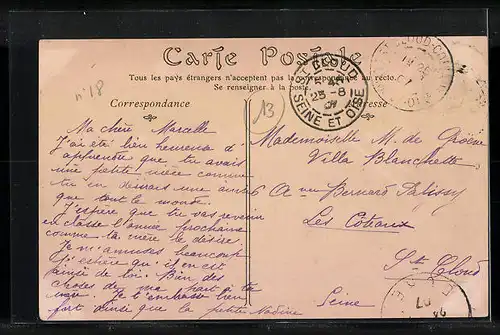 n° 18
Carte Postale
Tous les pays étrangers n'acceptent pas la correspondance au recto.
Se renseigner à la poste.
Correspondance
Adresse
13
ST CLOUD
25-8
07
SEINE ET OISE
Ma chère Marcelle
J'ai été bien heureuse d'
apprendre que tu avais
une petite nièce comme
tu en désires une ainsi
que tout le monde.
J'espère que tu vas revenir
en classe l'année prochaine
comme ta mère le désire.
Je m'amuse beaucoup
qu'il en est
de toi. Bien des
choses de ma part à ta
Je t'embrasse bien
fort ainsi que la petite Nadine
Mademoiselle M. de
Villa Blanchette
6 Avenue Bernard Palissy
Les Coteaux
St Cloud
Seine